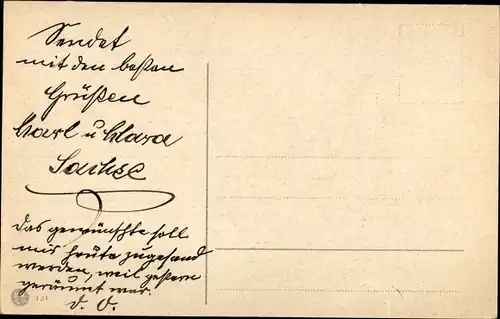 Sendet
mit den besten
Grüßen
Karl u Klara
Sachse
Das gewünschte soll
mir heute zugesand
werden, weil gestern
geräumt war.
d. O.
121